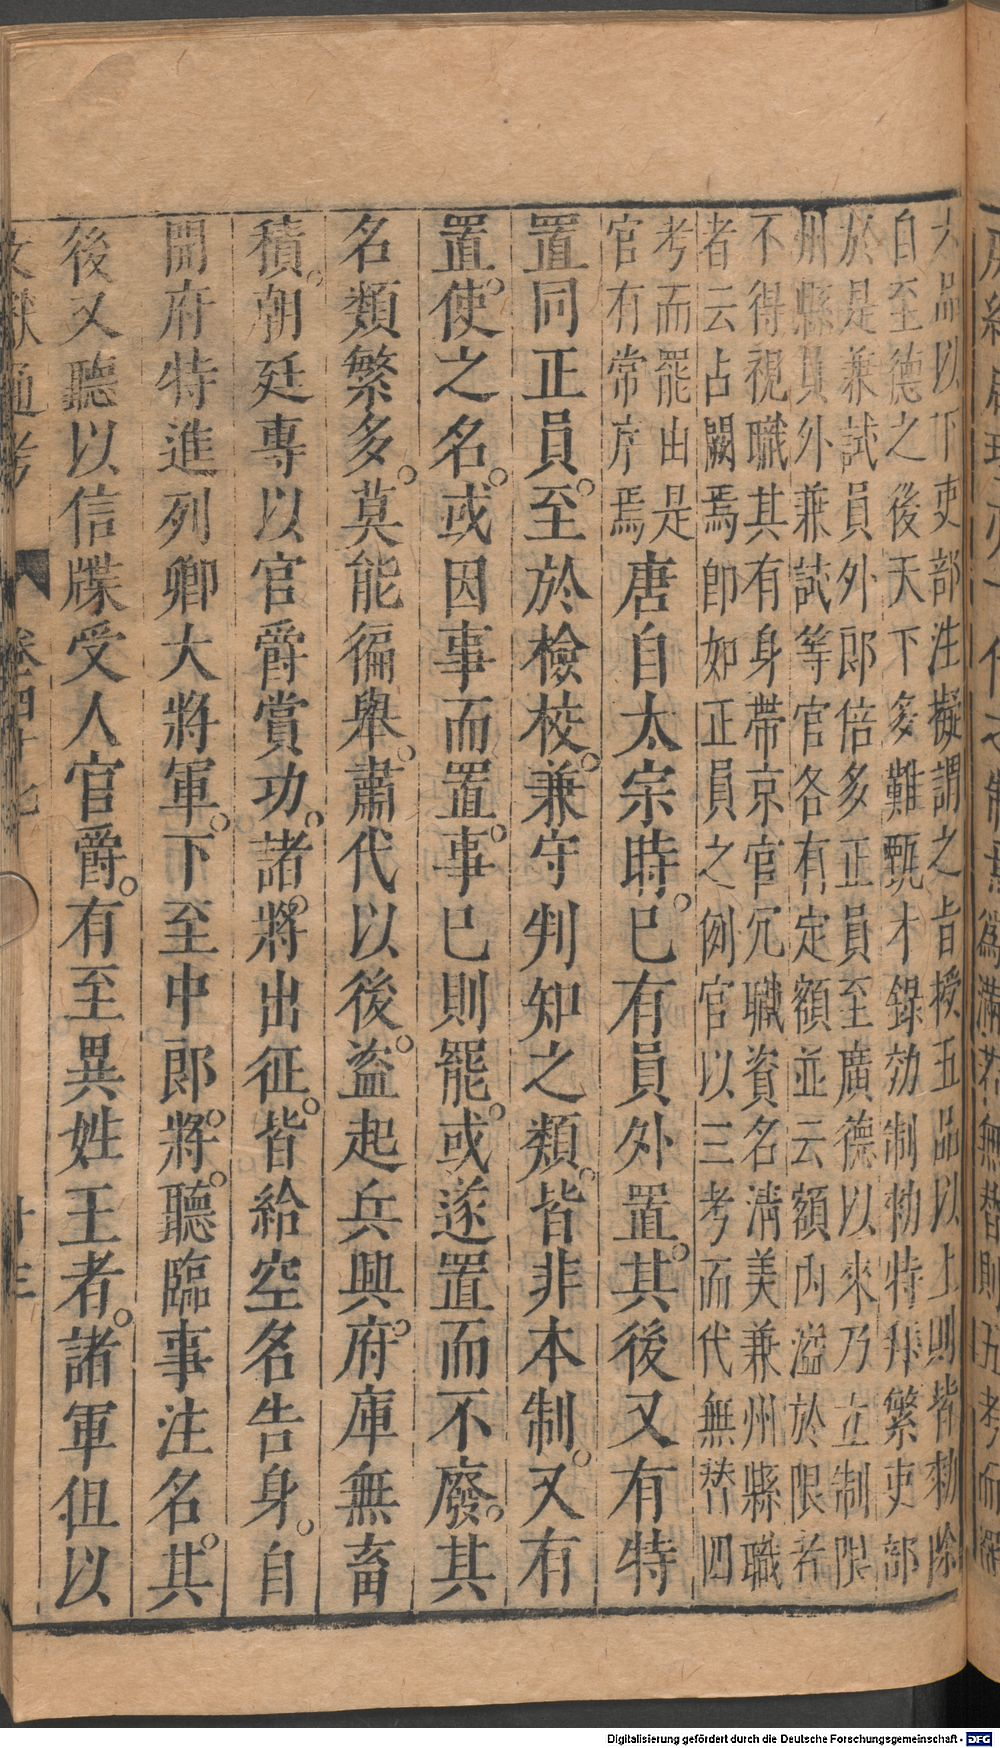 六品以下吏部注擬謂之旨授五品以上則皆勑除
自至德之後天下多難甄才錄効制勑特拜繁吏部
於是兼試員外郎倍多正員至廣德以來乃立制限
州縣員外兼試等官各有定額並云額内溢於限者
不得視職其有身帶京官冗職資名清美兼州縣職
者云占闕焉卽如正員之例官以三考而代無替四
考而罷出是
官有常序焉
唐自太宗時。已有員外置。其後又有特
置同正員。至於檢校。兼守判知之類。皆非本制。又有
置使之名。或因事而置事已則罷。或遂置而不廢。其
名類繁多。莫能徧舉。肅代以後。盗起兵興府庫無畜
積。朝廷專以官爵賞功。諸將出征。皆給空名告身。自
開府特進列卿大將軍。下至中郎將。聽臨事注名。其
後又聽以信牒受人官爵。有至異姓王者。諸軍但以
文獻通考 卷四十七 十三
Digitalisierung gefördert durch die Deutsche Forschungsgemeinschaft - DFG